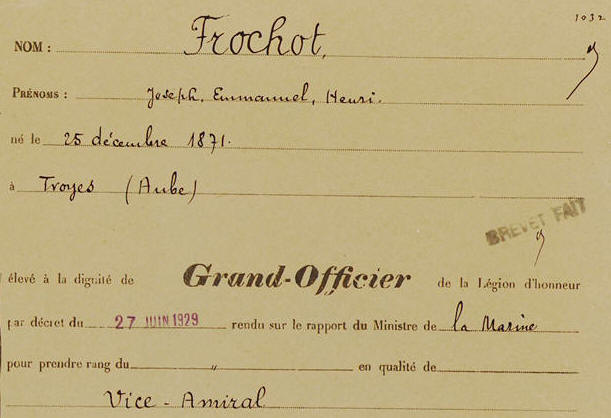 1032
NOM : Frochot,
PRÉNOMS : Joseph, Emmanuel, Henri.
né le 25 décembre 1871.
à Troyes (Aube)
BREVET FAIT
élevé à la dignité de Grand-Officier de la Légion d'honneur
par décret du 27 JUIN 1929 rendu sur le rapport du Ministre de la Marine
pour prendre rang du " en qualité de
Vice-Amiral